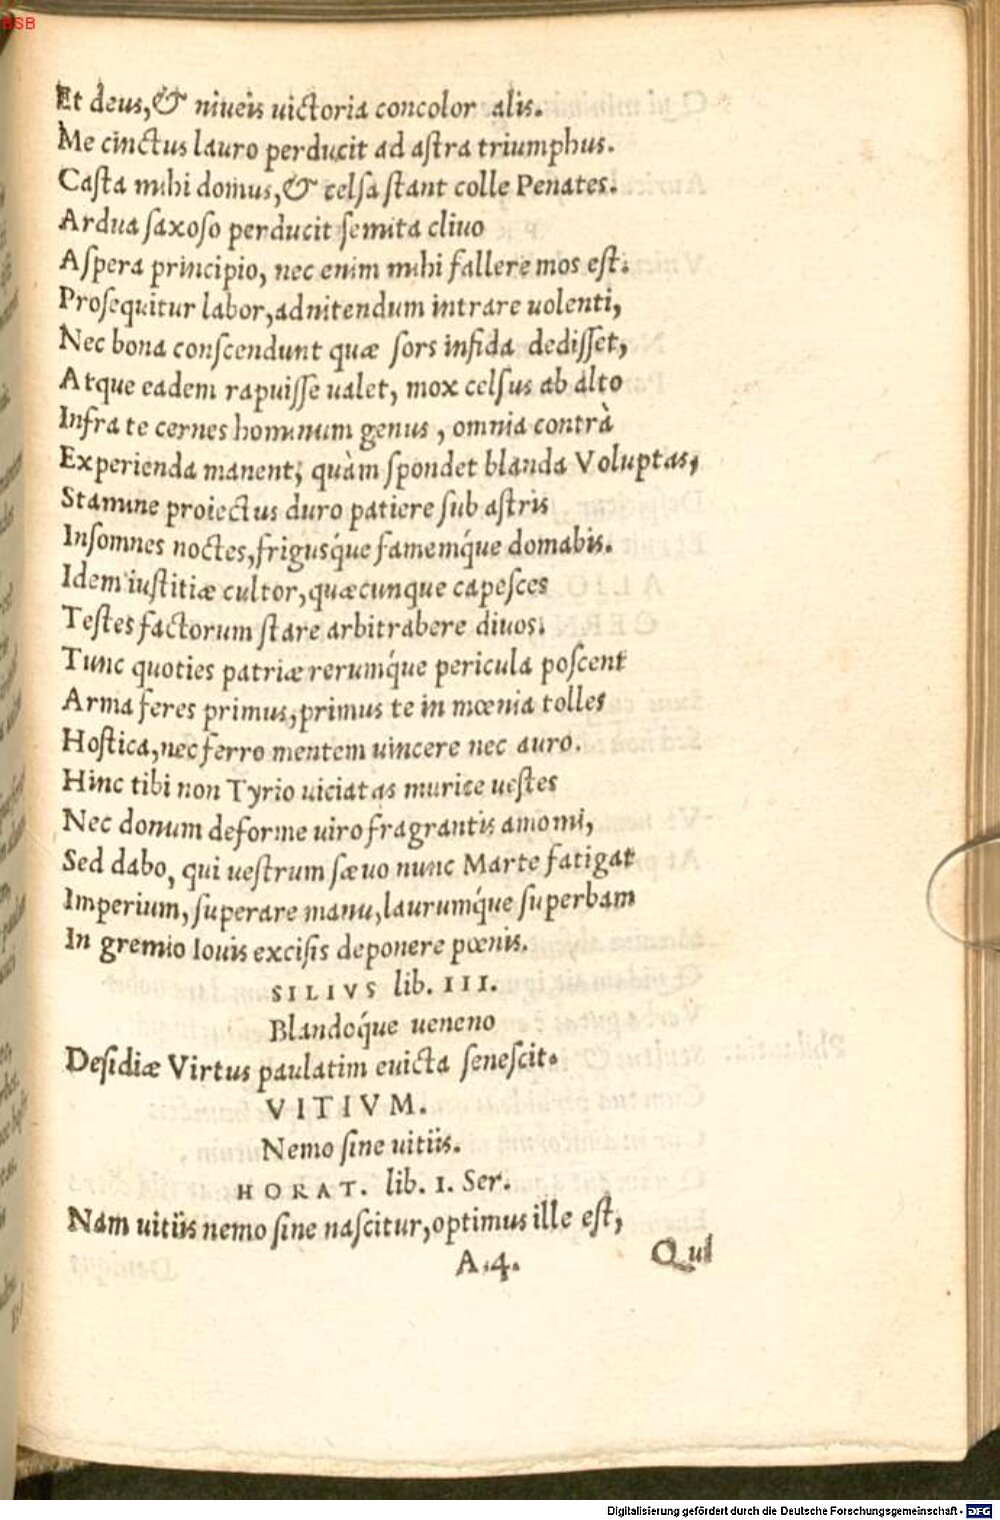 BSB
Et deus,& niueis uictoria concolor alis.
Me cinctus lauro perducit ad aſtra triumphus.
Caſta mihi domus,& celſa ſtant colle Penates.
Ardua ſaxoſo perducit ſemita cliuo
Aſpera principio, nec enim mihi fallere mos eſt:
Proſequitur labor,adnitendum intrare uolenti,
Nec bona conſcendunt quæ ſors infida dediſſet,
Atque eadem rapuiſſe ualet, mox celſus ab alto
Infra te cernes hominum genus , omnia contrà
Experienda manent, quàm ſpondet blanda Voluptas,
Stamine proiectus duro patiere ſub aſtris
Inſomnes noctes,frigusq́ue famemq́ue domabis.
Idem iuſtitiæ cultor,quæcunque capeſces
Teſtes factorum ſtare arbitrabere diuos.
Tunc quoties patriæ rerumq́ue pericula poſcent
Arma feres primus,primus te in mœnia tolles
Hoſtica,nec ferro mentem uincere nec auro.
Hinc tibi non Tyrio uiciatas murice ueſtes
Nec donum deforme uiro fragrantis amomi,
Sed dabo, qui ueſtrum ſæuo nunc Marte fatigat
Imperium,ſuperare manu,laurumq́ue ſuperbam
In gremio Iouis exciſis deponere pœnis.
SILIVS lib. III.
Blandoq́ue ueneno
Deſidiæ Virtus paulatim euicta ſeneſcit.
VITIVM.
Nemo ſine uitiis.
HORAT. lib. 1. Ser.
Nam uitiis nemo ſine naſcitur,optimus ille eſt,
A.4.
Qui
Digitalisierung gefördert durch die Deutsche Forschungsgemeinschaft - DFG